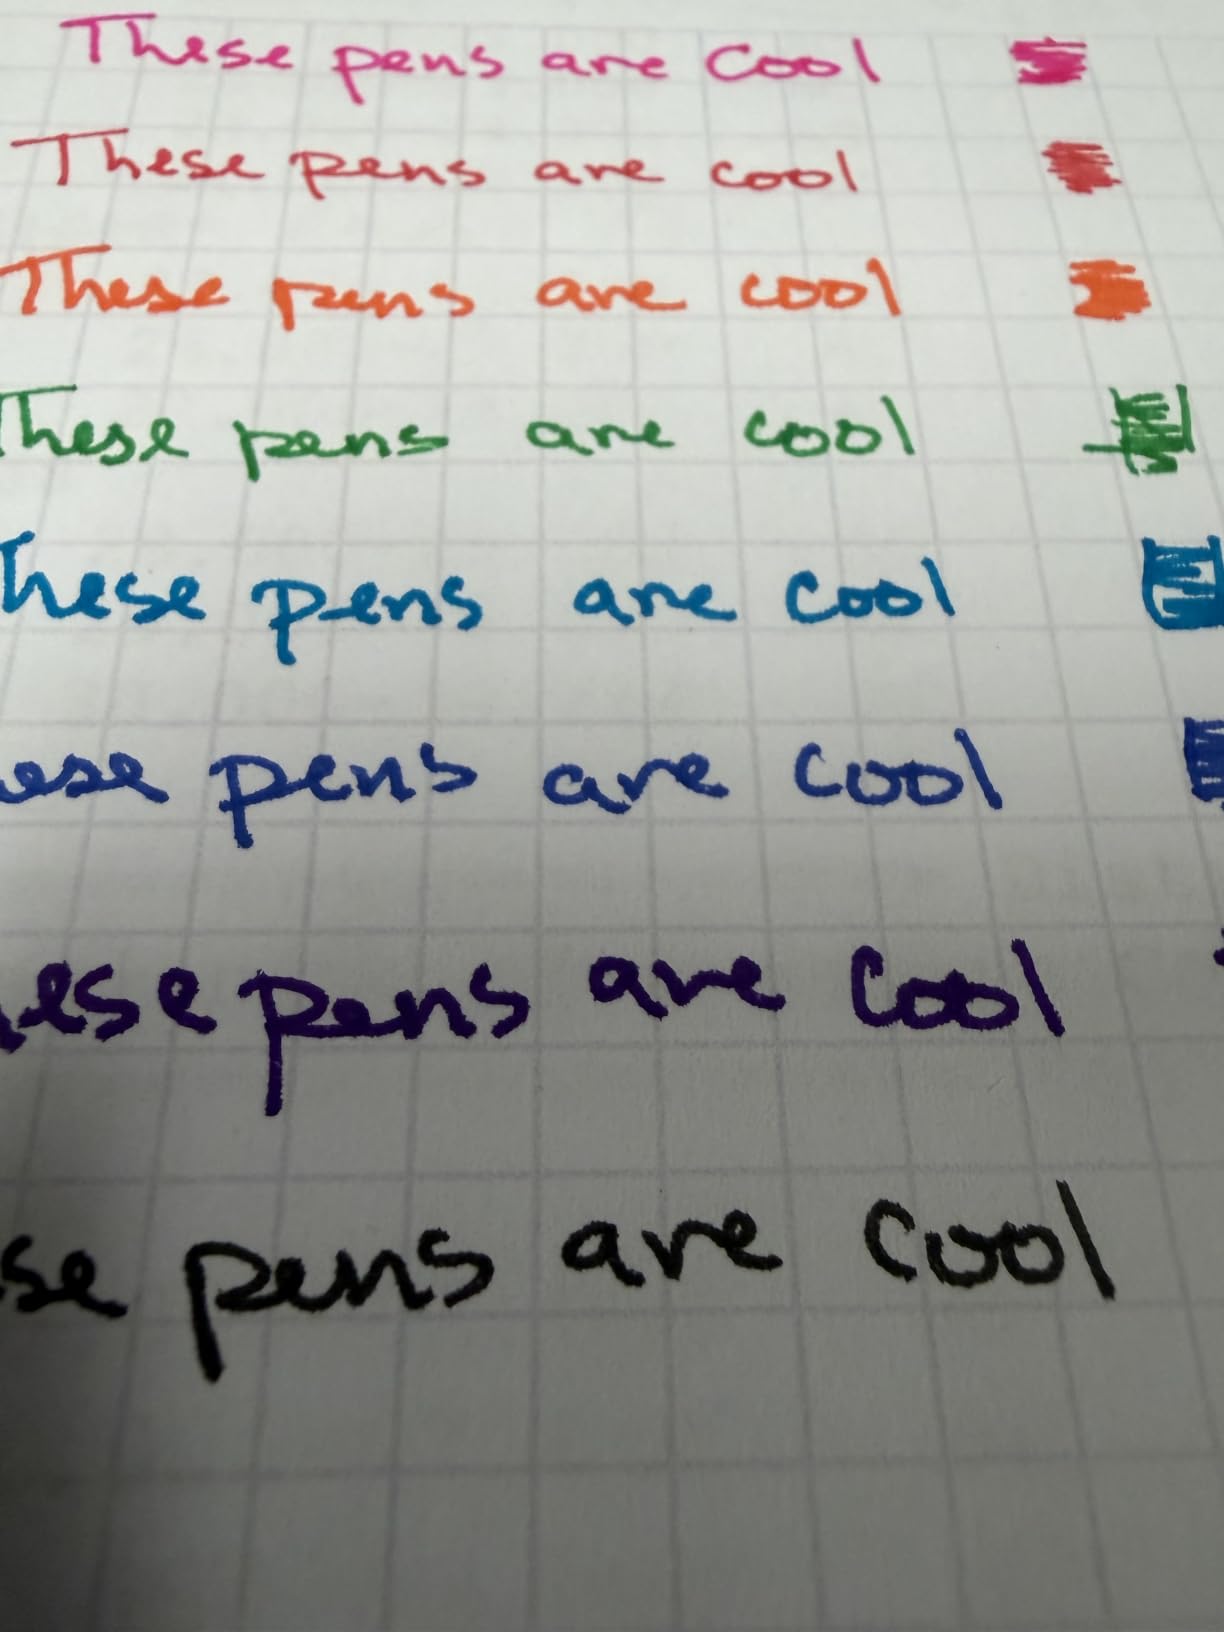 These pens are cool
These pens are cool
These pens are cool
These pens are cool
These pens are cool
ese pens are cool
ese pens are cool
se pens are cool